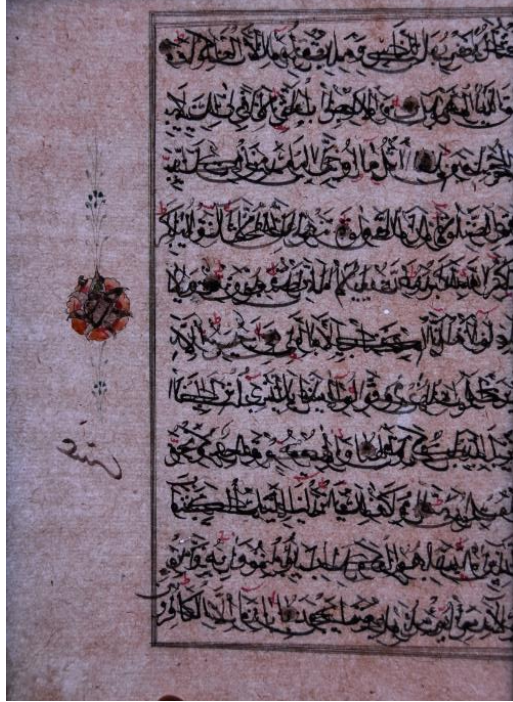 نضربها للناس وما يعقلها إلا العالمون خلق
الله السموات والأرض بالحق إن في ذلك لآ
للمؤمنين اتل ما أوحي إليك من الكتاب وأقم
الصلوة إن الصلوة تنهى عن الفحشاء والمنكر
ولذكر الله أكبر والله يعلم ما تصنعون ولا
تجادلوا أهل الكتاب إلا بالتي هي أحسن إلا الذ
ين ظلموا منهم وقولوا آمنا بالذي أنزل إلينا
وأنزل إليكم وإلهنا وإلهكم واحد ونحن
له مسلمون وكذلك أنزلنا إليك الكتاب
فالذين آتيناهم الكتاب يؤمنون به ومن
هؤلاء من يؤمن به وما يجحد بآياتنا إلا الكافر